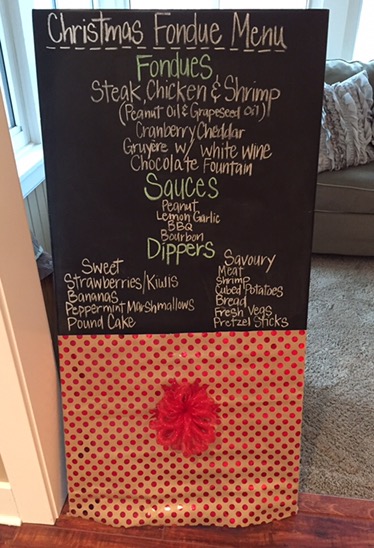 Christmas Fondue Menu
Fondues
Steak, Chicken & Shrimp
(Peanut Oil & Grapeseed Oil)
Cranberry Cheddar
Gruyère w/ White Wine
Chocolate Fountain
Sauces
Peanut
Lemon Garlic
BBQ
Bourbon
Dippers
Sweet
Strawberries/Kiwis
Bananas
Peppermint Marshmallows
Pound Cake
Savoury
Meat
Shrimp
Cubed Potatoes
Bread
Fresh Vegs
Pretzel Sticks